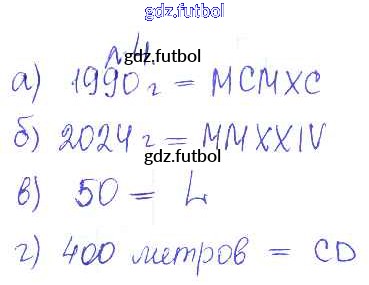 gdz.futbol
№4
gdz.futbol
а) 1990 г = MCMXC
б) 2024 г = MMXXIV
gdz.futbol
в) 50 = L
г) 400 метров = CD